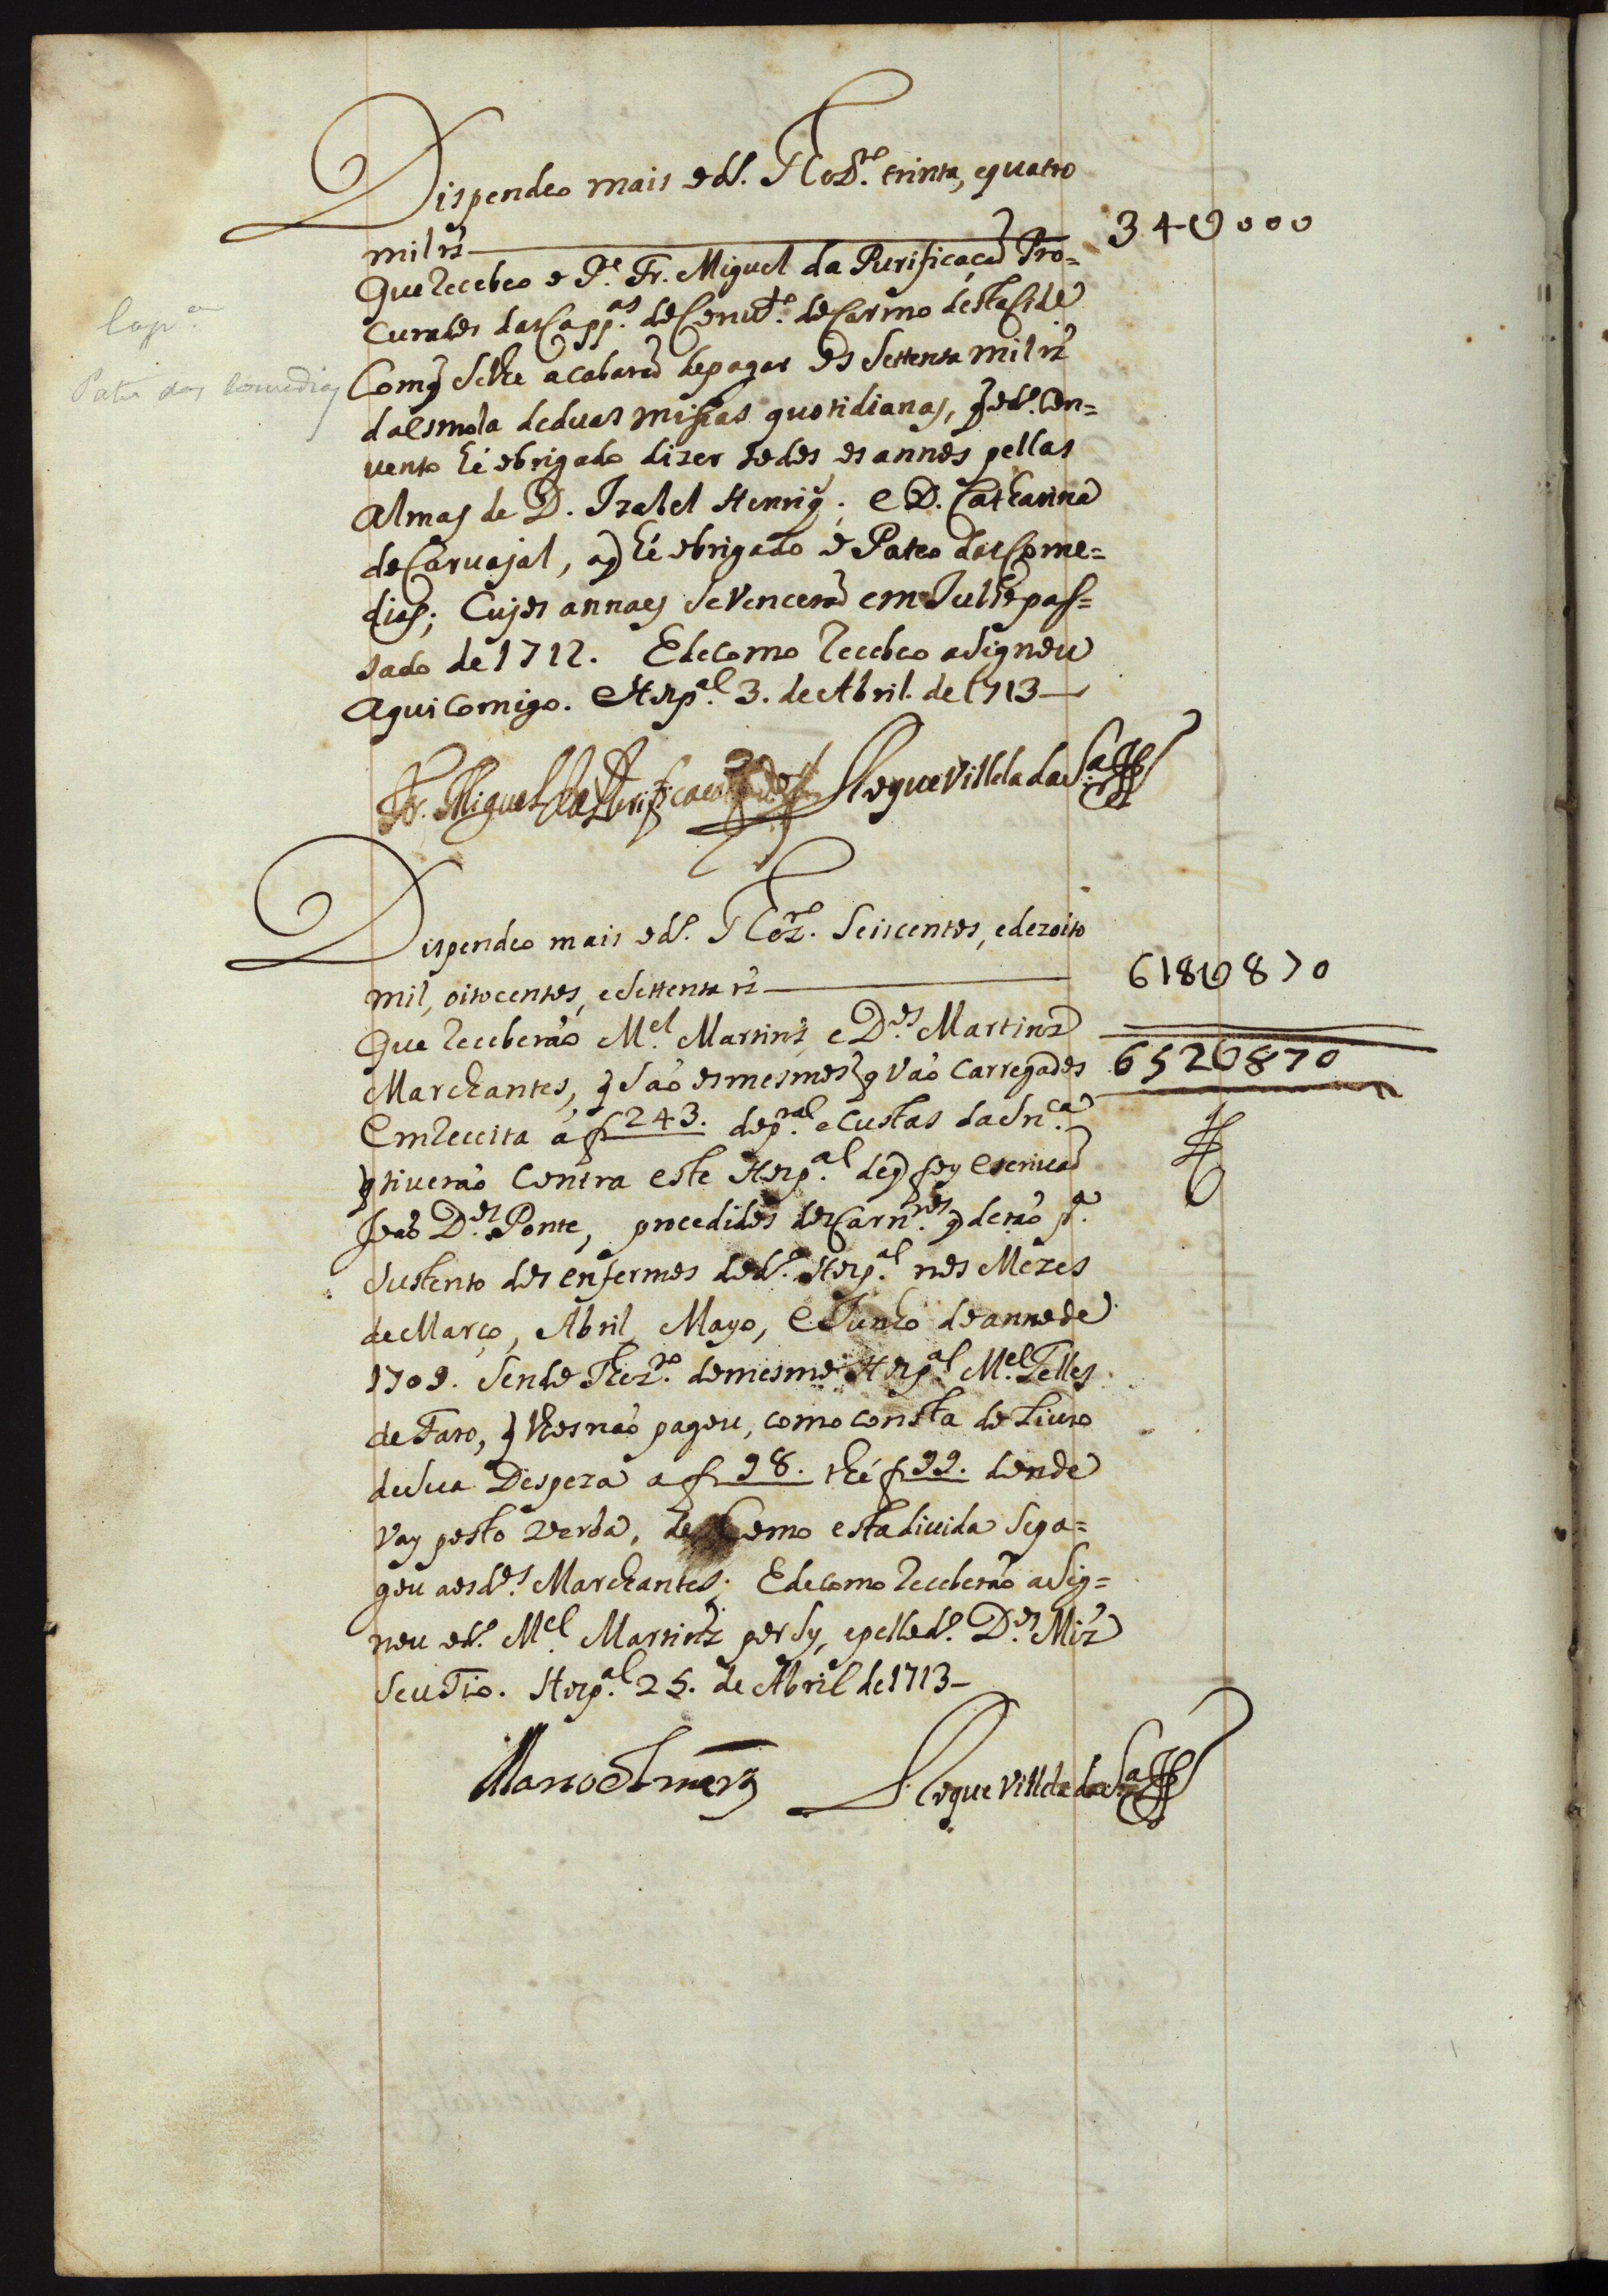 Dispendeo mais o dº. Thezrº. trinta, e quatro
mil rs 34U000
Que recebeo o Pe. Fr. Miguel da Purificaçaõ Pro=
curador das Capp.as do Conv.to do Carmo desta Cide
Com q̃ se lhe acabaraõ de pagar os settenta mil rs
da esmola de duas missas quotidianas, q̃ o dº. Con=
vento hé obrigado dizer todos os annos pellas
Almas de D. Izabel Henriq̃. e D. Catharina
de Carvajal, a q̃ hé obrigado o Pateo das Come=
dias; Cujos annaes se venceraõ em Julho pas=
sado de 1712. E de como recebeo asignou
aqui comigo. Hosp.al 3. de Abril de 1713
Capª
Patio das Comedias
Fr. Miguel da Purificacaõ Roque Villela da Sª
Dispendeo mais o dº. Thezrº. Seiscentos, e dezoito
mil, oitocentos, e settenta rs 618U870
Que receberaõ M.el Martins, e D.os Martins
Marchantes, q̃ saõ os mesmos q̃ vaõ carregados 652U870
Em receita a f 243. do p.al e custas da sn.ca
q̃ tiveraõ contra este Hosp.al de q̃ foy escrivaõ
Joaõ D.os Ponte, procedidos de Carn.es q̃ deraõ p.ª
sustento dos enfermos do dº. Hosp.al nos Mezes
de Março, Abril, Mayo, e Junho do anno de
1709. sendo Thez.ro do mesmo Hosp.al M.el Telles
de Faro, q̃ lhes não pagou, como consta do Livro
de sua Despeza a f 98. thé f 99. donde
vay posto verba, de como esta divida se pa=
gou aos d.os Marchantes; E de como receberaõ asig=
nou o dº. M.el Martins por sy, e pello dº. D.os Miz
seu Tio. Hosp.al 25. de Abril de 1713
Manoel Martz Roque Villela da Sª